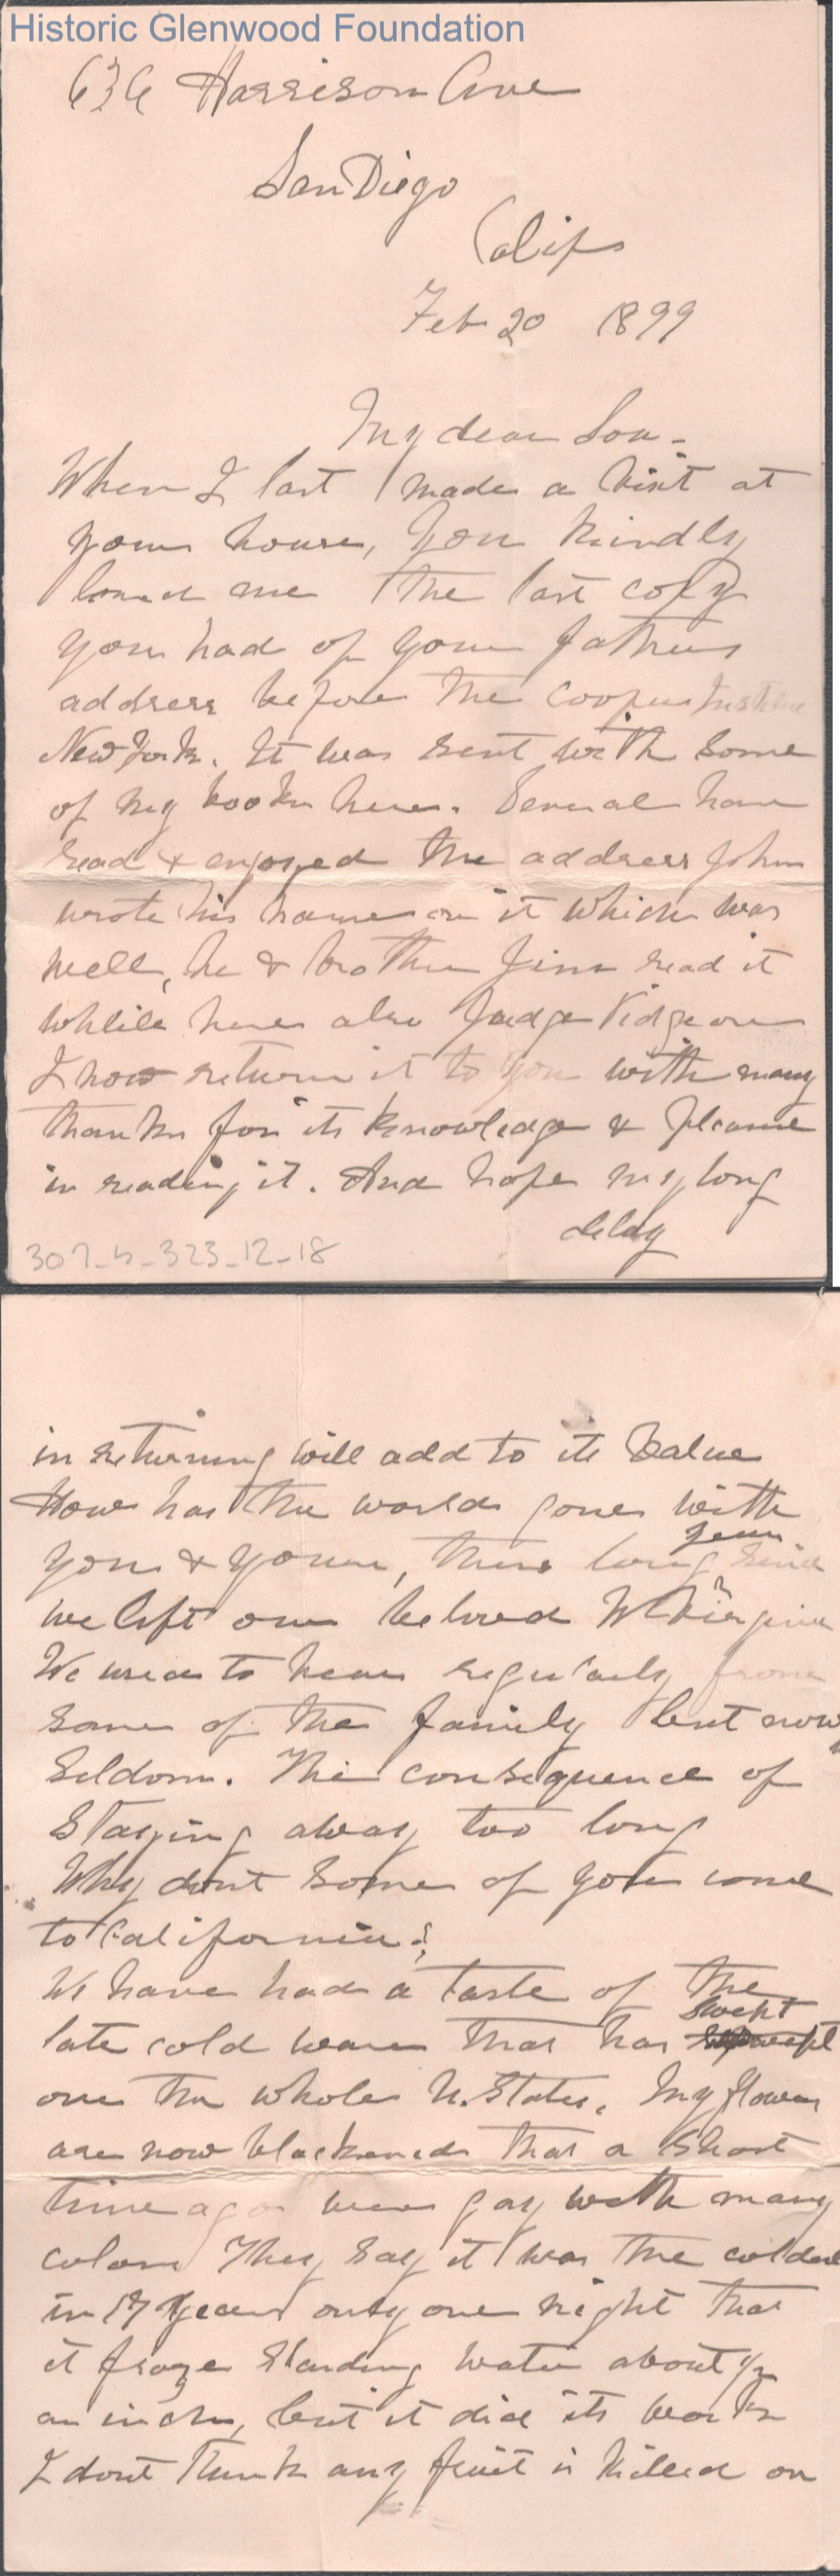 Historic Glenwood Foundation
636 Harrison Ave
San Diego
Calif
Feb 20 1899
My dear Lou -
When I last made a visit at
your house, you kindly
loaned me the last copy
you had of your fathers
address before the Cooper Institute
New York. It was sent with some
of my books here. Several have
read & enjoyed the address John
wrote his name on it which was
well, he & brother Jim read it
while here also Judge Pidgeon
I now return it to you with many
thanks for its knowledge & pleasure
in reading it. And hope my long
delay
307-4-323-12-18
in returning will add to its value
How has the world gone with
you & yours, these long years since
we left our beloved W Virginia
We used to hear regularly from
some of the family but now
seldom. The consequence of
staying away too long
Why dont some of you come
to California?
We have had a taste of the
late cold wave that has swept
over the whole U. States. My flowers
are now blackened that a short
time ago were gay with many
colors They say it was the coldest
in 17 years only one night that
it froze standing water about 1/2
an inch, but it did its work
I dont think any fruit is killed on